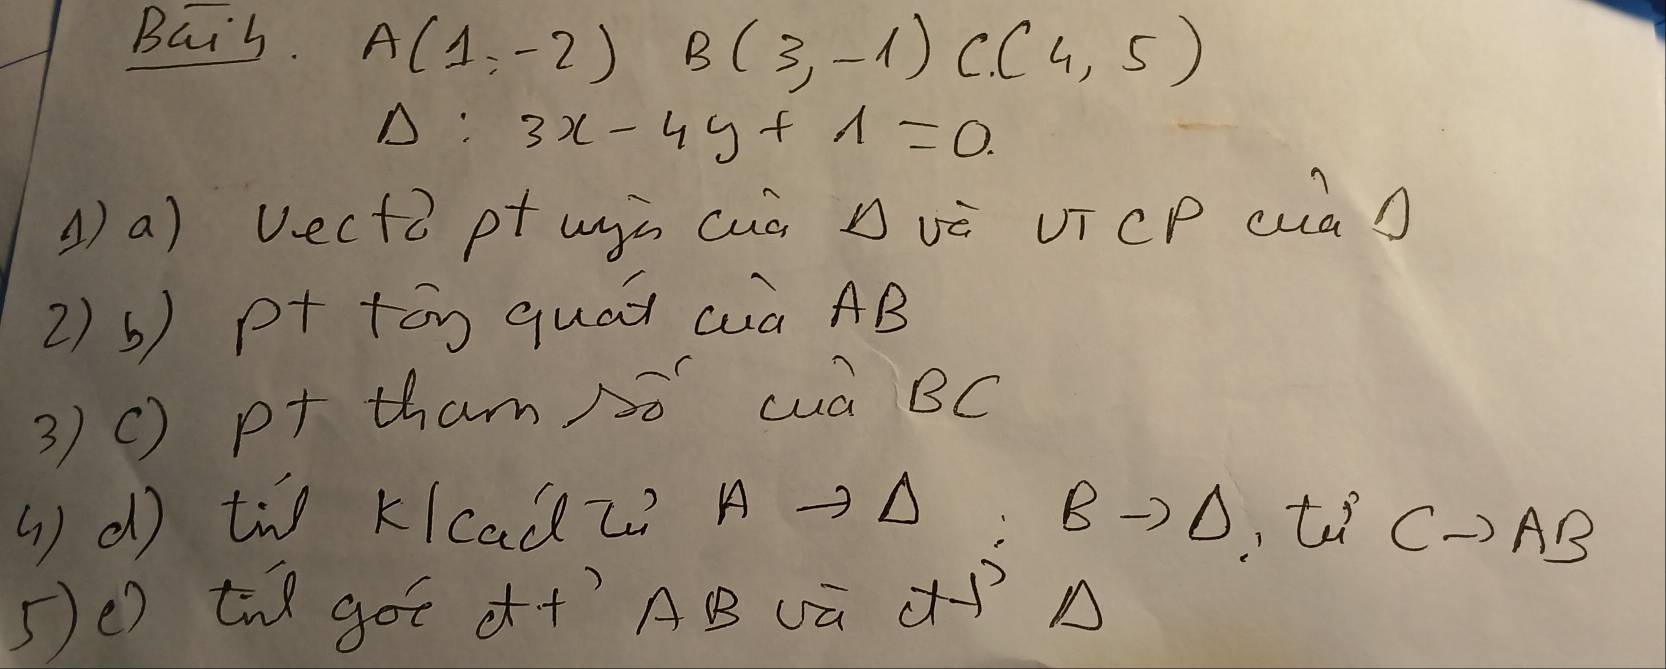 Bài 4. A(1;-2) B(3,-1) C(4,5)
Δ: 3x-4y+1=0.
1) a) Vectơ pt uyến của Δ và VTCP của Δ
2) b) pt tổng quát của AB
3) c) pt tham số của BC
4) d) tính k/cách từ A → Δ; B → Δ, từ C → AB
5) e) tính góc đt' AB và đt' Δ